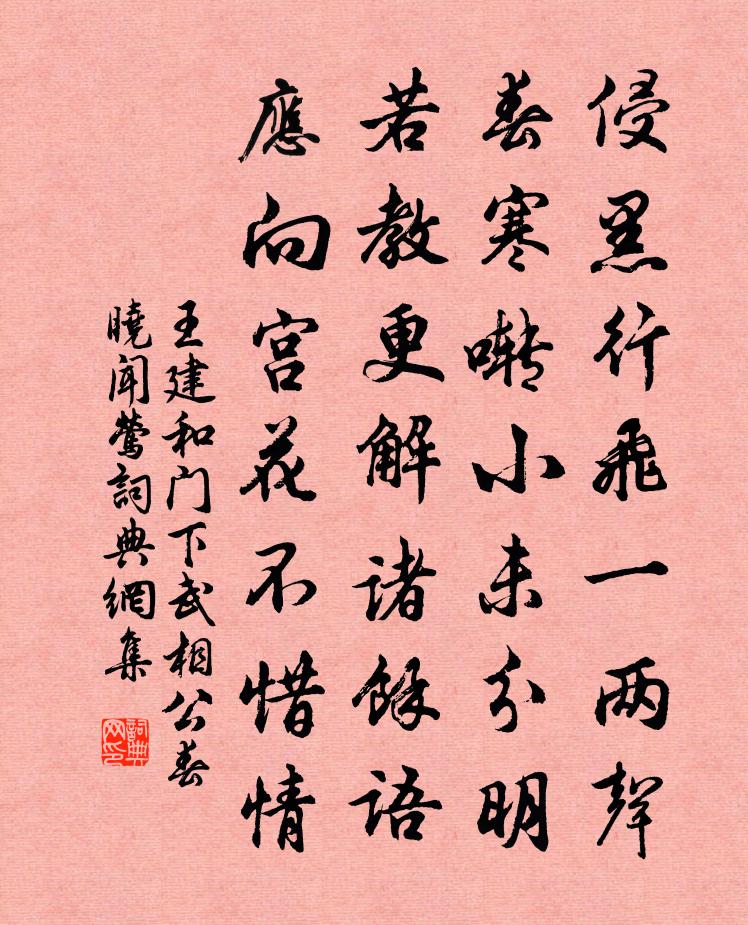 侵黑行飛一两聲
春寒囀小未分明
若教更解諸餘語
應向宫花不惜情
王建和门下武相公春
曉聞鶯詞典網集
詞典网印